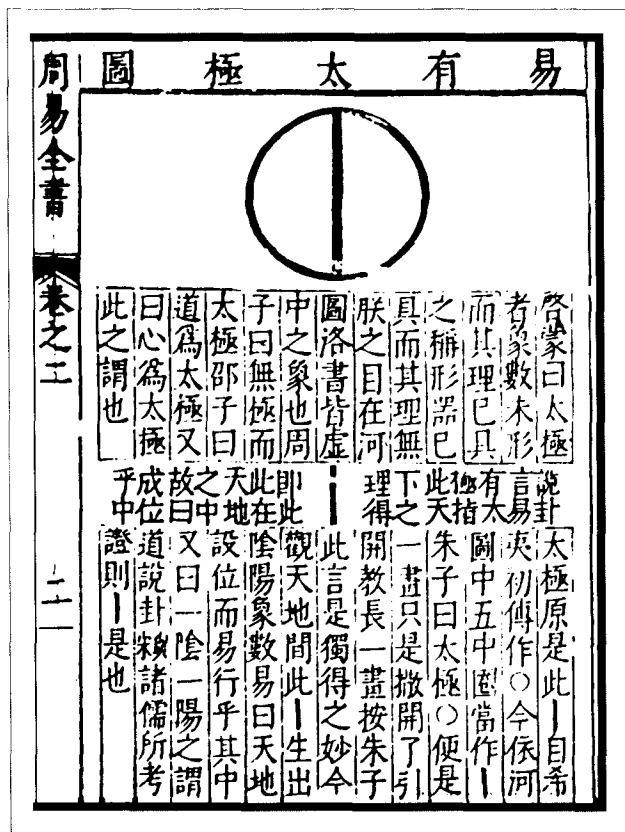 易有太極圖
啓蒙曰太極
者象數未形
而其理已具
之稱形器已
具而其理無
朕之目在河
圖洛書皆虛
中之象也周
子曰無極而
太極邵子曰
道爲太極又
曰心爲太極
此之謂也
說卦
言易
有太
極指
此天
下之
理得
丨
即此
此在
天地
之中
故曰
成位
乎中
太極原是此丨自希
夷初傳作○今依河
圖中五中圈當作丨
朱子曰太極○便是
一畫只是撒開了引
開教長一畫按朱子
此言是獨得之妙今
觀天地間此丨生出
陰陽象數易曰天地
設位而易行乎其中
又曰一陰一陽之謂
道說卦類諸儒所考
證則丨是也
周易全書 卷之二 二一